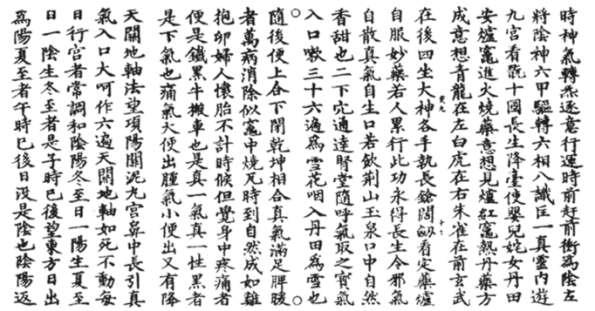 時神氣轉烝逐意行運時前赶前衝為陰左
將陰神六甲驅轉六相八識匡一真靈內遊
九宮看翫十國長生降臺使嬰兒姹女丹田
安爐竈進火燒藥意想見爐紅竈熱丹藥方
成意想青龍在左白虎在右朱雀在前玄武
在後四坐大神各手執長鎗闊劔看定藥爐
自服妙藥若人累行此功永得長生令邪氣
自散真氣自生口若飲荆山玉泉口中自然
香甜也二下宂通達腎堂隨呼氣取之實氣
入口嗽三十六遍為雪花咽入丹田為雪也
隨後便上合下閉乾坤相合真氣滿足胖䏶
者萬病消除似竈中燒瓦時到自然成如雞
抱卵婦人懷胎不計時候但覺身中疼痛者
便是鐵黑牛搬車也是真一氣真一性黑者
是下氣也痛氣大便出腫氣小便出又有降
天關地軸法望項陽關泥九宮鼻中長引真
氣入口大呵作六遍天關地軸如死不動每
日行宮者常調和陰陽冬至日一陽生夏至
日一陰生冬至者是子時巳後望東方日出
為陽夏至者午時巳後日没是陰也陰陽返